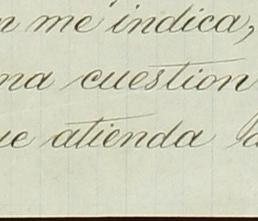 n me indica,
na cuestion
ue atienda